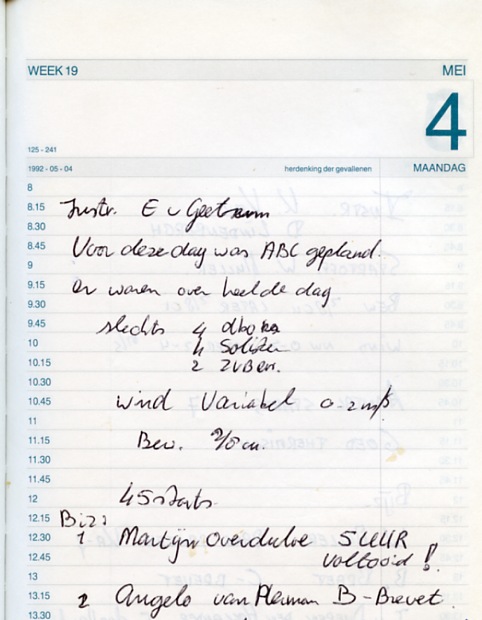 WEEK 19 MEI
4
125 - 241
1992 - 05 - 04 herdenking der gevallenen MAANDAG
8
8.15 Instr. E v Geetsum
8.30
8.45 Voor deze dag was ABC gepland.
9
9.15 er waren over heel de dag
9.30
9.45 slechts 4 dbo
10 4 Solisten
10.15 2 zvBers.
10.30
10.45 wind Variabel 0-2 m/s
11
11.15 Bew.
11.30
11.45
12 45 starts
12.15 Biz:
12.30 1 Martijn Overdulve 5 UUR
12.45 voltooid !
13
13.15 2 Angelo van Hemmen B-Brevet
13.30